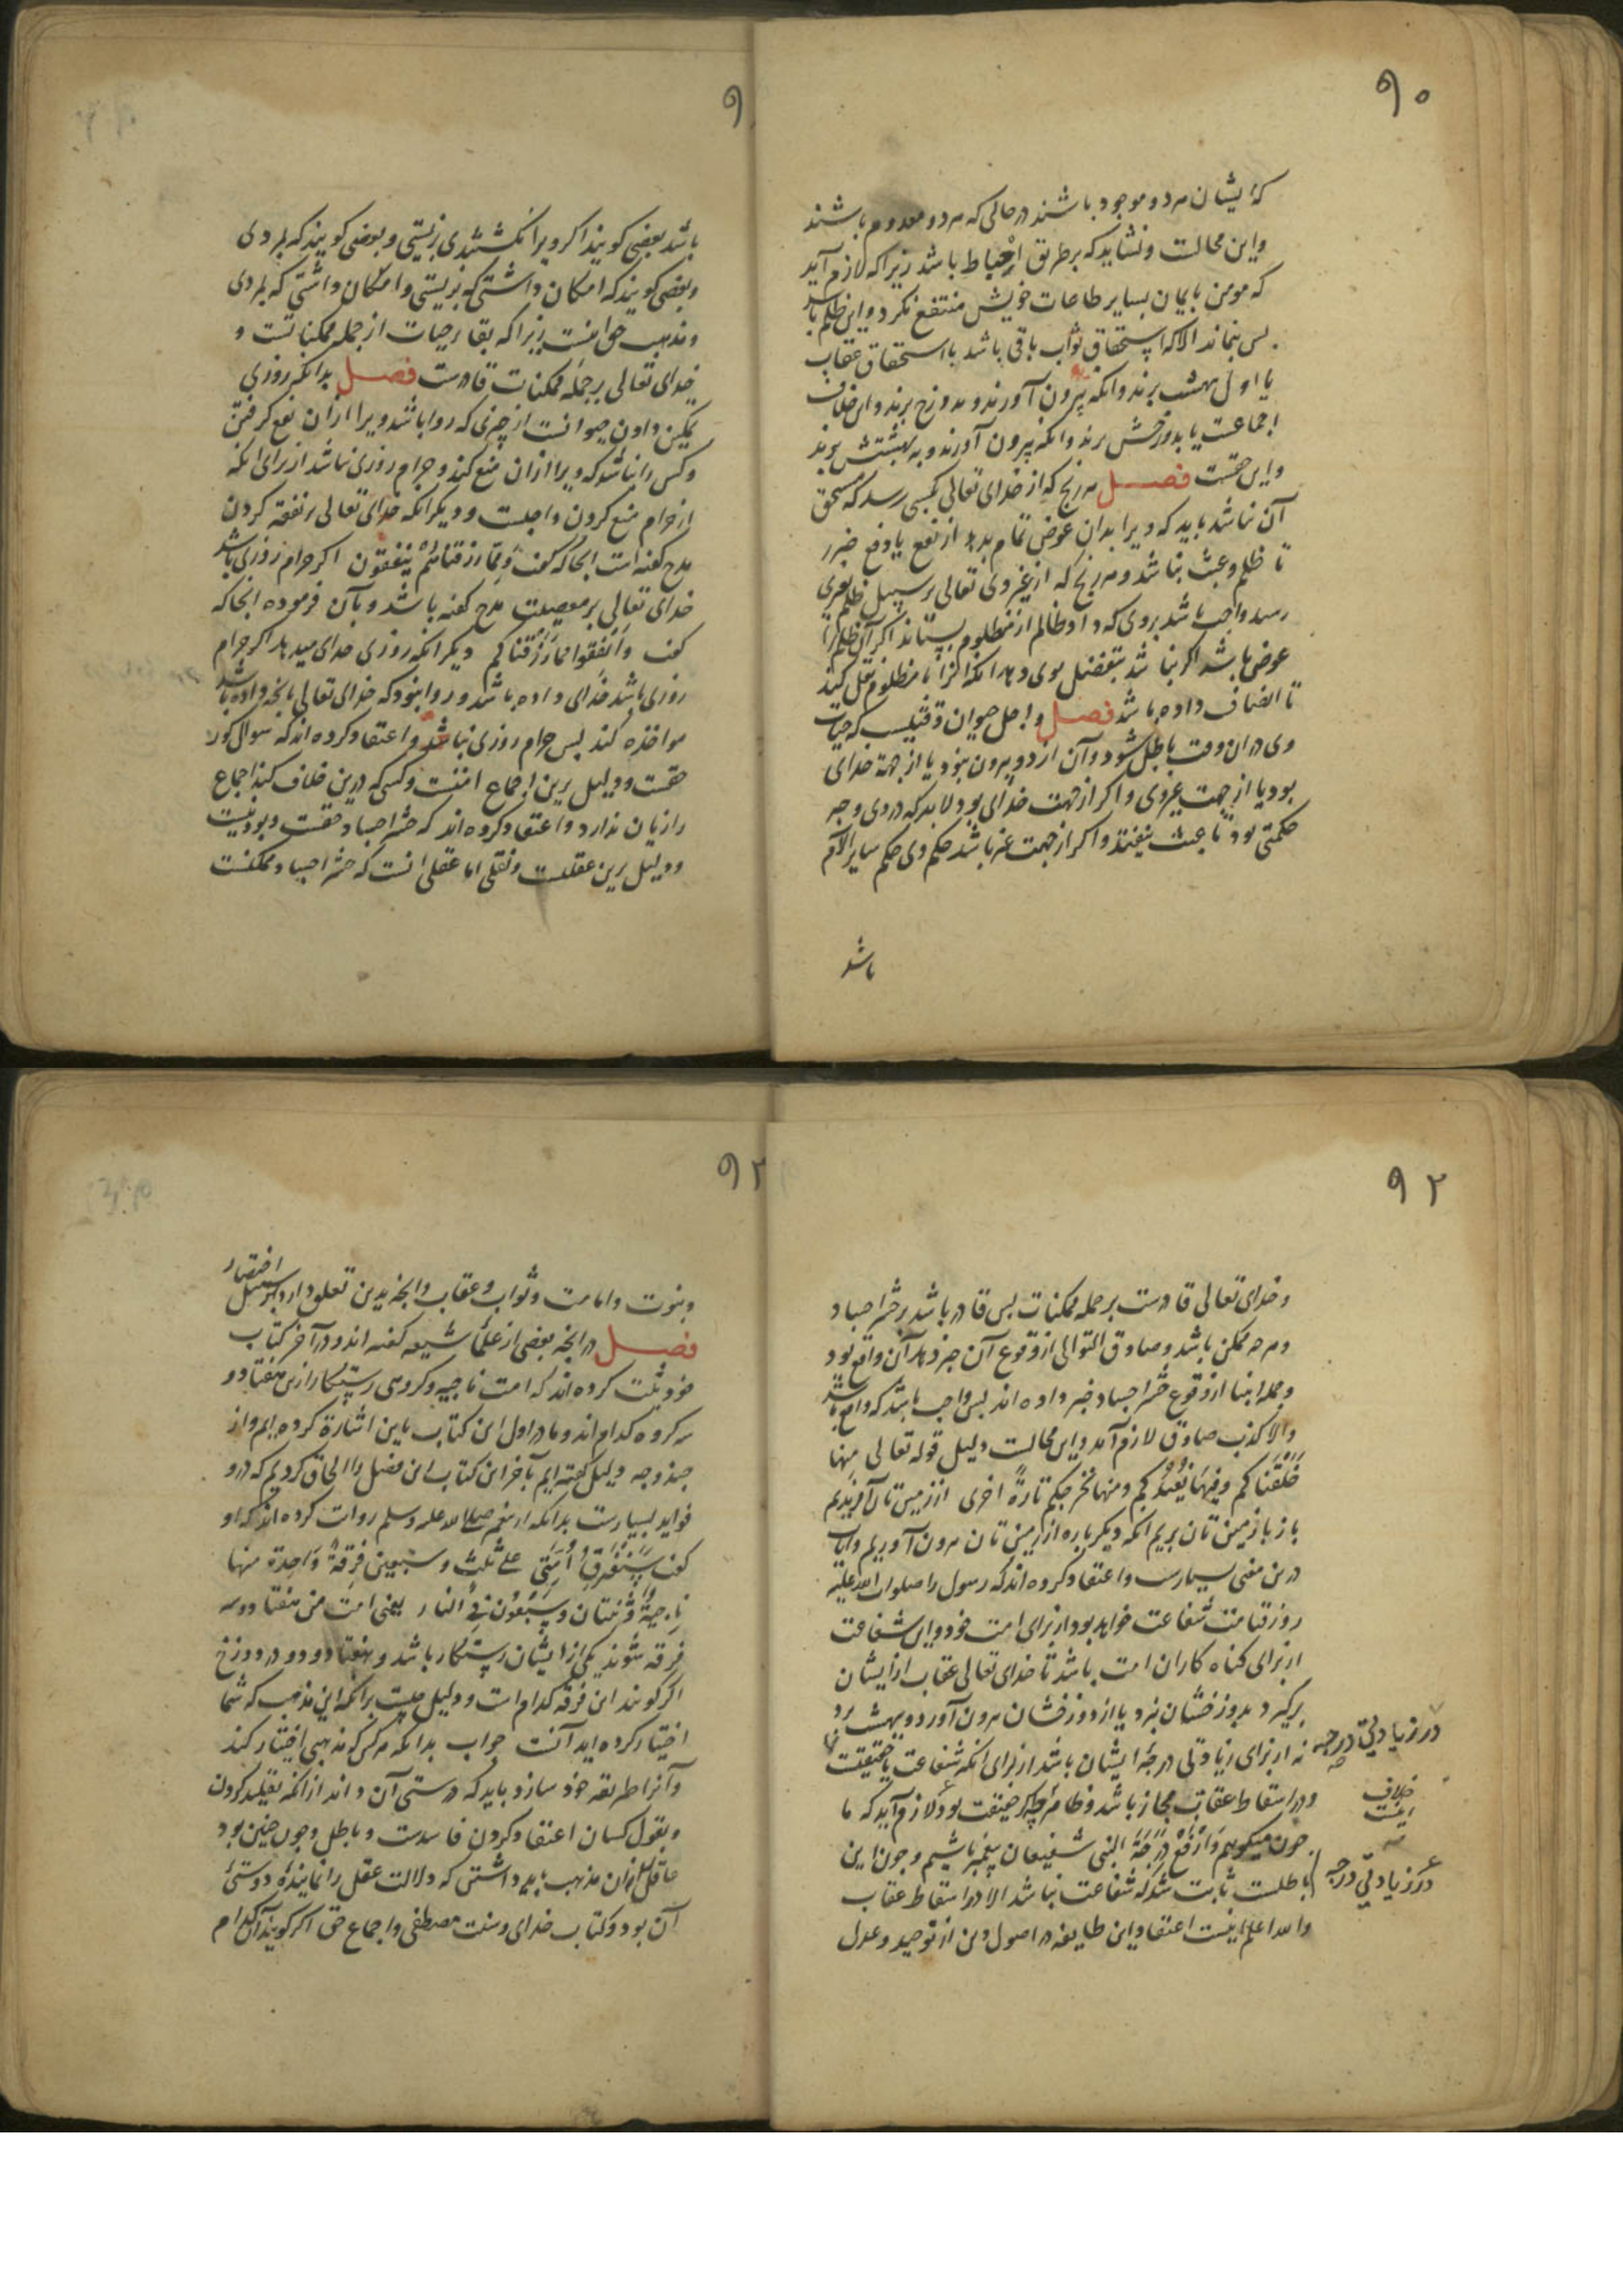 ۹۰
که ایشان هر دو موجود باشند در حالی که هر دو معدوم باشند
واین محالست ونشاید که برطریق احباط باشد زیرا که لازم آید
که مومن بایمان بسایر طاعات خویش منتفع نکردد واین ظلم باشد
پس بنماند الا که استحقاق ثواب باقی باشد با استحقاق عقاب
یا اول ببهشت برند وانکه بیرون آورند وبدوزخ برند واین خلاف
اجماعست یا بدوزخش برند وانکه بیرون آورند وبه بهشتش برند
واین حقست فصل هر رنج که از خدای تعالی بکسی رسد که مستحق
آن نباشد باید که ویرا بدان عوض تمام بدهد از نفع یا دفع ضرر
تا ظلم وعبث نباشد وهر رنج که از غیر وی تعالی بر سبیل ظلم بغیری
رسد واجب باشد بروی که داد ظالم از مظلوم بستاند اکر آن ظلم را
عوض باشد اکر نباشد بتفضل بوی دهد انکه انرا با مظلوم نقل کند
تا انصاف داده باشد فصل واجل حیوان وقتیست که حیات
وی در ان وقت باطل شود وآن از دو بیرون نبود یا از جهة خدای
بود یا از جهت غیر وی واکر از جهت خدای بود لابد که در وی وجه
حکمتی بود تا عبث نیفتد واکر از جهت غیر باشد حکم وی حکم سایر الام
باشد
۹
باشد بعضی کویند اکر ویرا نکشتندی بزیستی وبعضی کویند که بمردی
وبعضی کویند که امکان داشتی که بزیستی وامکان داشتی که بمردی
ومذهب حق اینست زیرا که بقا وحیات از جمله ممکناتست و
خدای تعالی بر جمله ممکنات قادرست فصل بدانکه روزی
تمکین دادن حیوانست از چیزی که روا باشد ویرا ازان نفع کرفتن
وکس را نباشد که ویرا ازان منع کند وحرام روزی نباشد از برای انکه
از حرام منع کردن واجبست ودیکر انکه خدای تعالی بر نفقه کردن
مدح کفته است انجا که کفت وَمِمّا رزقناهُمْ یُنفقون اکر حرام روزی باشد
خدای تعالی بر معصیت مدح کفته باشد وبآن فرموده انجا که
کفت وَاَنفقوا مما رَزَقناکم دیکر انکه روزی خدای میدهد اکر حرام
روزی باشد خدای داده باشد وروا نبود که خدای تعالی بانچه داده باشد
مواخذه کند پس حرام روزی نباشد واعتقاد کرده اند که سوال کور
حقست ودلیل برین اجماع امتست وکسی که درین خلاف کند اجماع
را زیان ندارد واعتقاد کرده اند که حشر اجساد حقست وبودنیست
ودلیل برین عقلست ونقلی اما عقلی انست که حشر اجساد ممکنست
۹۲
وخدای تعالی قادرست بر جمله ممکنات پس قادر باشد بر حشر اجساد
وهرچه ممکن باشد وصادق القول از وقوع آن خبر دهد آن واقع بود
وجمله انبیا از وقوع حشر اجساد خبر داده اند پس واجب باشد که واقع باشد
والا کذب صادق لازم آید واین محالست دلیل قوله تعالی مِنها
خَلَقناکم وفیها نُعیدُکم ومنها نخرجکم تارةً اخری از زمین تان آفریدیم
باز بازمین تان بریم انکه دیکر باره از زمین تان بیرون آوریم وایات
درین معنی بسیارست واعتقاد کرده اند که رسول را صلوات الله علیه
روز قیامت شفاعت خواهد بود از برای امت خود واین شفاعت
از برای کناه کاران امت باشد تا خدای تعالی عقاب از ایشان
برکیرد بدوزخشان نبرد یا از دوزخشان بیرون آورد وببهشت برد
نه از برای زیادتی درجهٔ ایشان باشد از برای انکه شفاعت یا حقیقت
ودر اسقاط عقاب مجاز باشد وظاهر حقیقت بود ولازم آید که ما
چون میکوییم وَارْفَعْ دَرَجَةَ النبی شفیعان پیغمبر باشیم وچون این
باطلست ثابت شد که شفاعت نباشد الا در اسقاط عقاب
والله اعلم اینست اعتقاد این طایفه در اصول دین از توحید وعدل
در زیادتی درجه
خلاف
اینست
در زیادتی درجه
۹۲
ونبوت وامامت وثواب وعقاب وانچه بدین تعلق دارد بر سبیل اختصار
فصل در انچه بعضی از علمای شیعه کفته اند ودر آخر کتاب
خود ثبت کرده اند که امت ناجیه وکروهی رستکار ازین هفتاد و
سه کروه کدام اند وما در اول این کتاب باین اشارة کرده ایم واز
چند وجه دلیل کفته ایم بآخر این کتاب این فصل را الحاق کردیم که در و
فواید بسیارست بدانکه از پیغمبر صلی الله علیه وسلم روایت کرده اند که او
کفت سَتَفْتَرِقُ اُمَّتی علی ثلث وسبعین فِرقةً وَاحِدة منها
نَاجیةٌ وَاثنتان وسَبْعُوْن فِی النار یعنی امت من هفتاد وسه
فرقه شوند یکی از ایشان رستکار باشد وهفتاد ودو در دوزخ
اکر کویند این فرقه کدام است ودلیل چیست برانکه این مذهب که شما
اختیار کرده اید آنست جواب بدانکه هر کس که مذهبی اختیار کند
وآنرا طریقه خود سازد باید که درستی آن داند از انکه تقلید کردن
وبقول کسان اعتقاد کردن فاسدست وباطل وچون چنین بود
عاقل را آن مذهب باید داشتن که دلالت عقل را نماینده درستی
آن بود وکتاب خدای وسنت مصطفی واجماع حق اکر کویند آن کدام